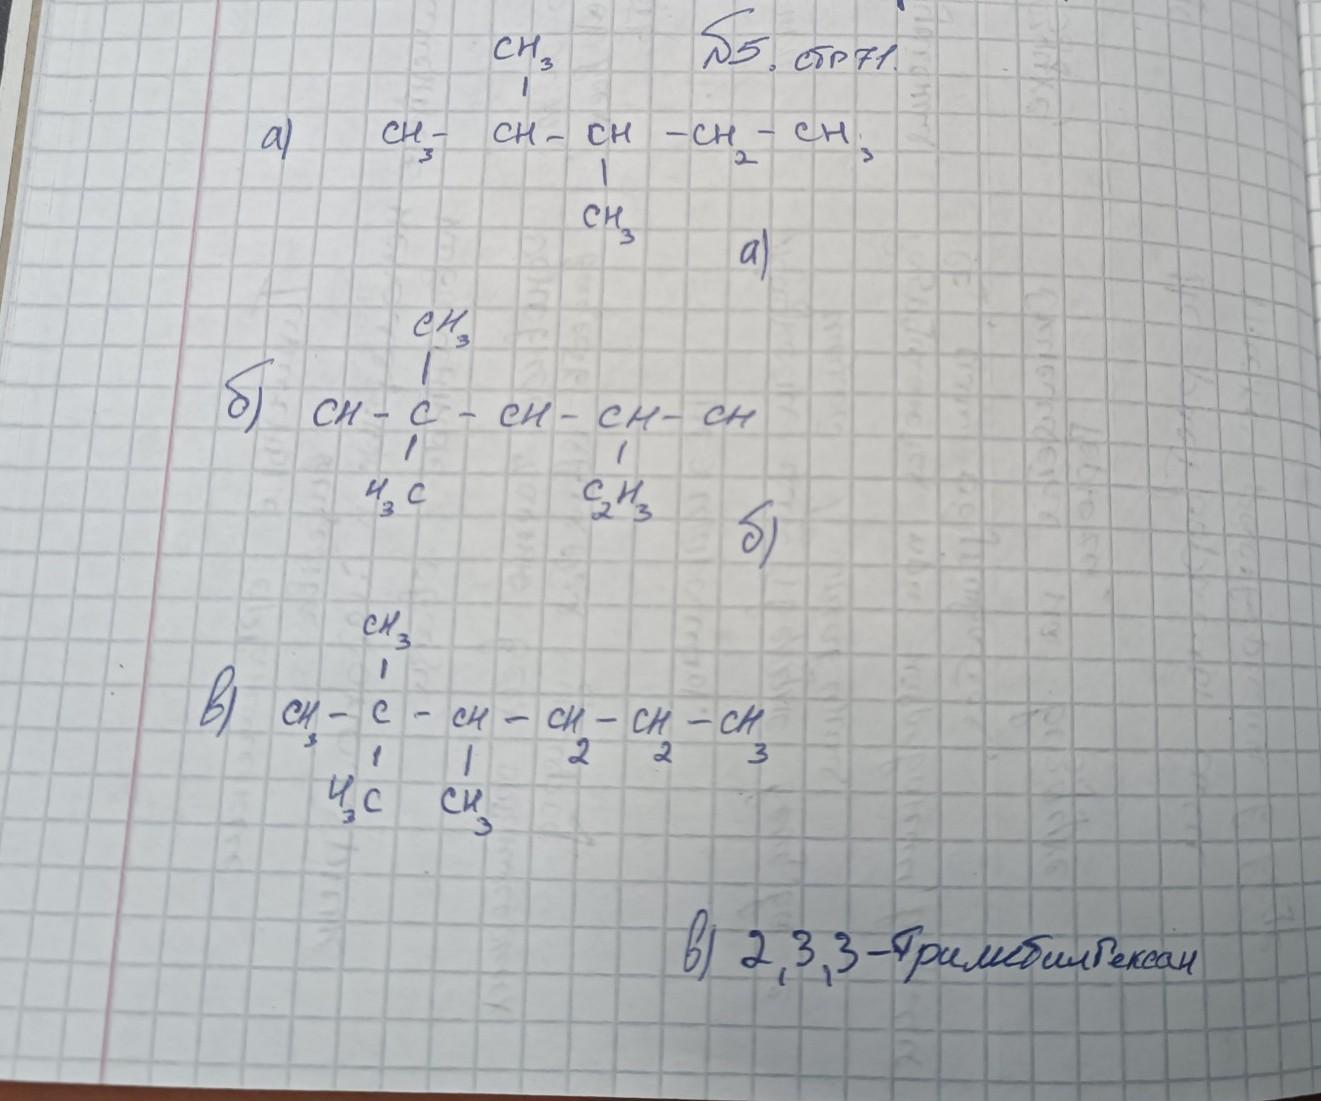 CH₃ №5. стр 71.
а) CH₃ - CH - CH - CH₂ - CH₃
CH₃
а)
CH₃
б) CH - C - CH - CH - CH
H₃C C₂H₃
б)
CH₃
в) CH₃ - C - CH - CH₂ - CH₂ - CH₃
H₃C CH₃
в) 2,3,3-Триметилгексан